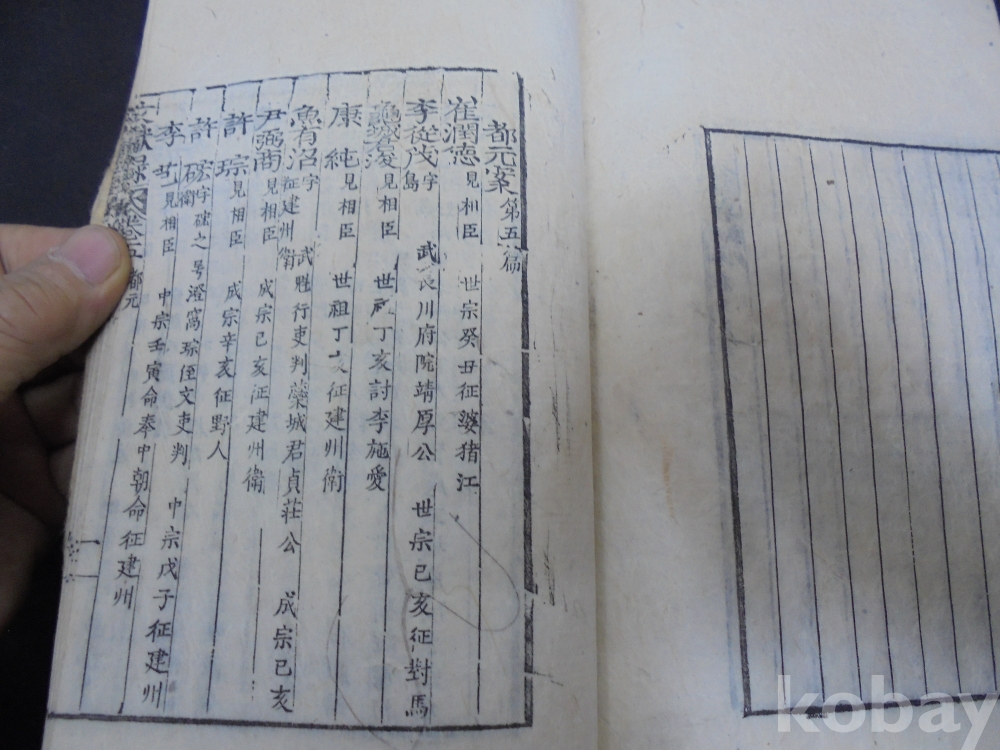 都元案第五篇
崔潤德見相臣 世宗癸丑征婆猪江
李從茂字 武長川府院靖厚公 世宗己亥征對馬
島
見相臣 世祖丁亥討李施愛
康純見相臣 世祖丁亥征建州衛
魚有沼字 武魁行吏判蘂城君貞莊公 成宗己亥
征建州衛
尹弼商見相臣 成宗己亥征建州衛
許琮見相臣 成宗辛亥征野人
許硡字硡之 号澄窩琮侄文吏判 中宗戊子征建州
衛
李芑見相臣 中宗壬寅命奉中朝命征建州
文獻錄 卷五 都元
kobay